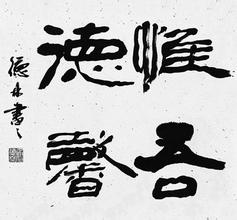 惟吾
德馨
德林書